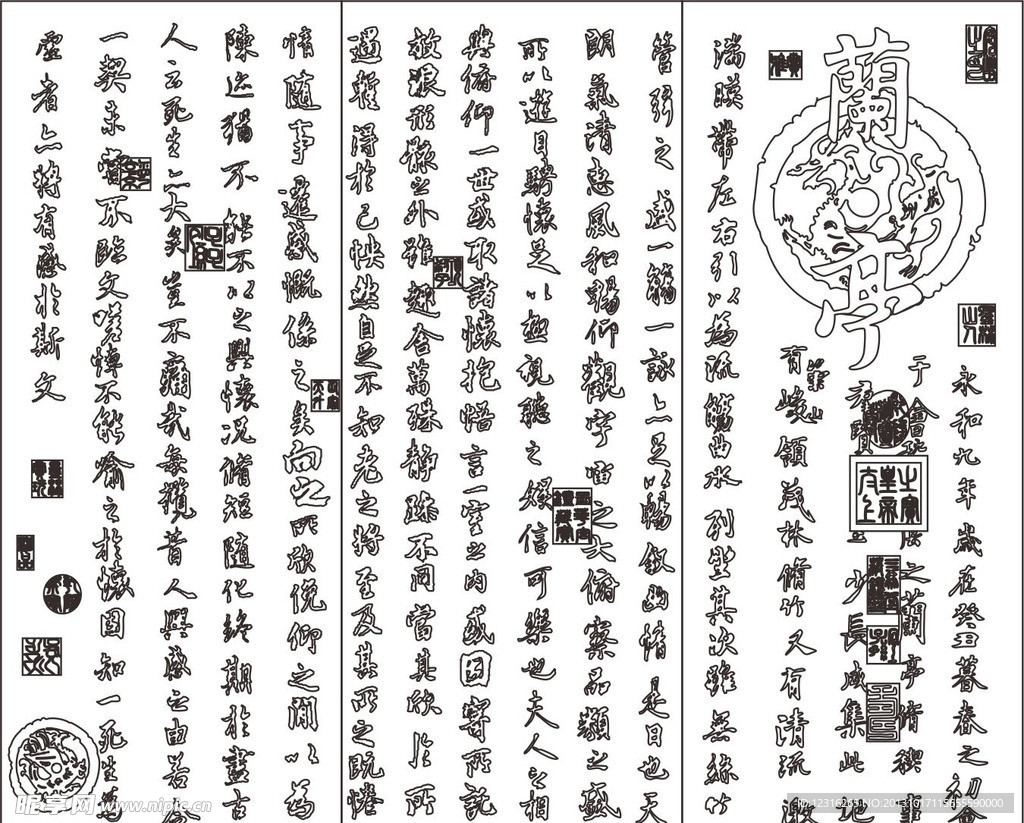 蘭亭
永和九年歲在癸丑暮春之初會
于會稽之蘭亭脩稧事
賢少長咸集此地
崇山
有峻領茂林脩竹又有清流激
湍暎帶左右引以為流觴曲水列坐其次雖無絲竹
管弦之盛一觴一詠亦足以暢敘幽情是日也天
朗氣清惠風和暢仰觀宇宙之大俯察品類之盛
所以遊目騁懷足以極視聽之娛信可樂也夫人之相
與俯仰一世或取諸懷抱悟言一室之內或因寄所託
放浪形骸之外雖趣舍萬殊靜躁不同當其欣於所
遇暫得於己怏然自足不知老之將至及其所之既惓
情隨事遷感慨係之矣向之所欣俛仰之閒以為
陳迹猶不能不以之興懷況脩短隨化終期於盡古
人云死生亦大矣豈不痛哉每攬昔人興感之由若合
一契未嘗不臨文嗟悼不能喻之於懷固知一死生為
靈者亦將有感於斯文
昵享网 www.nipic.cn